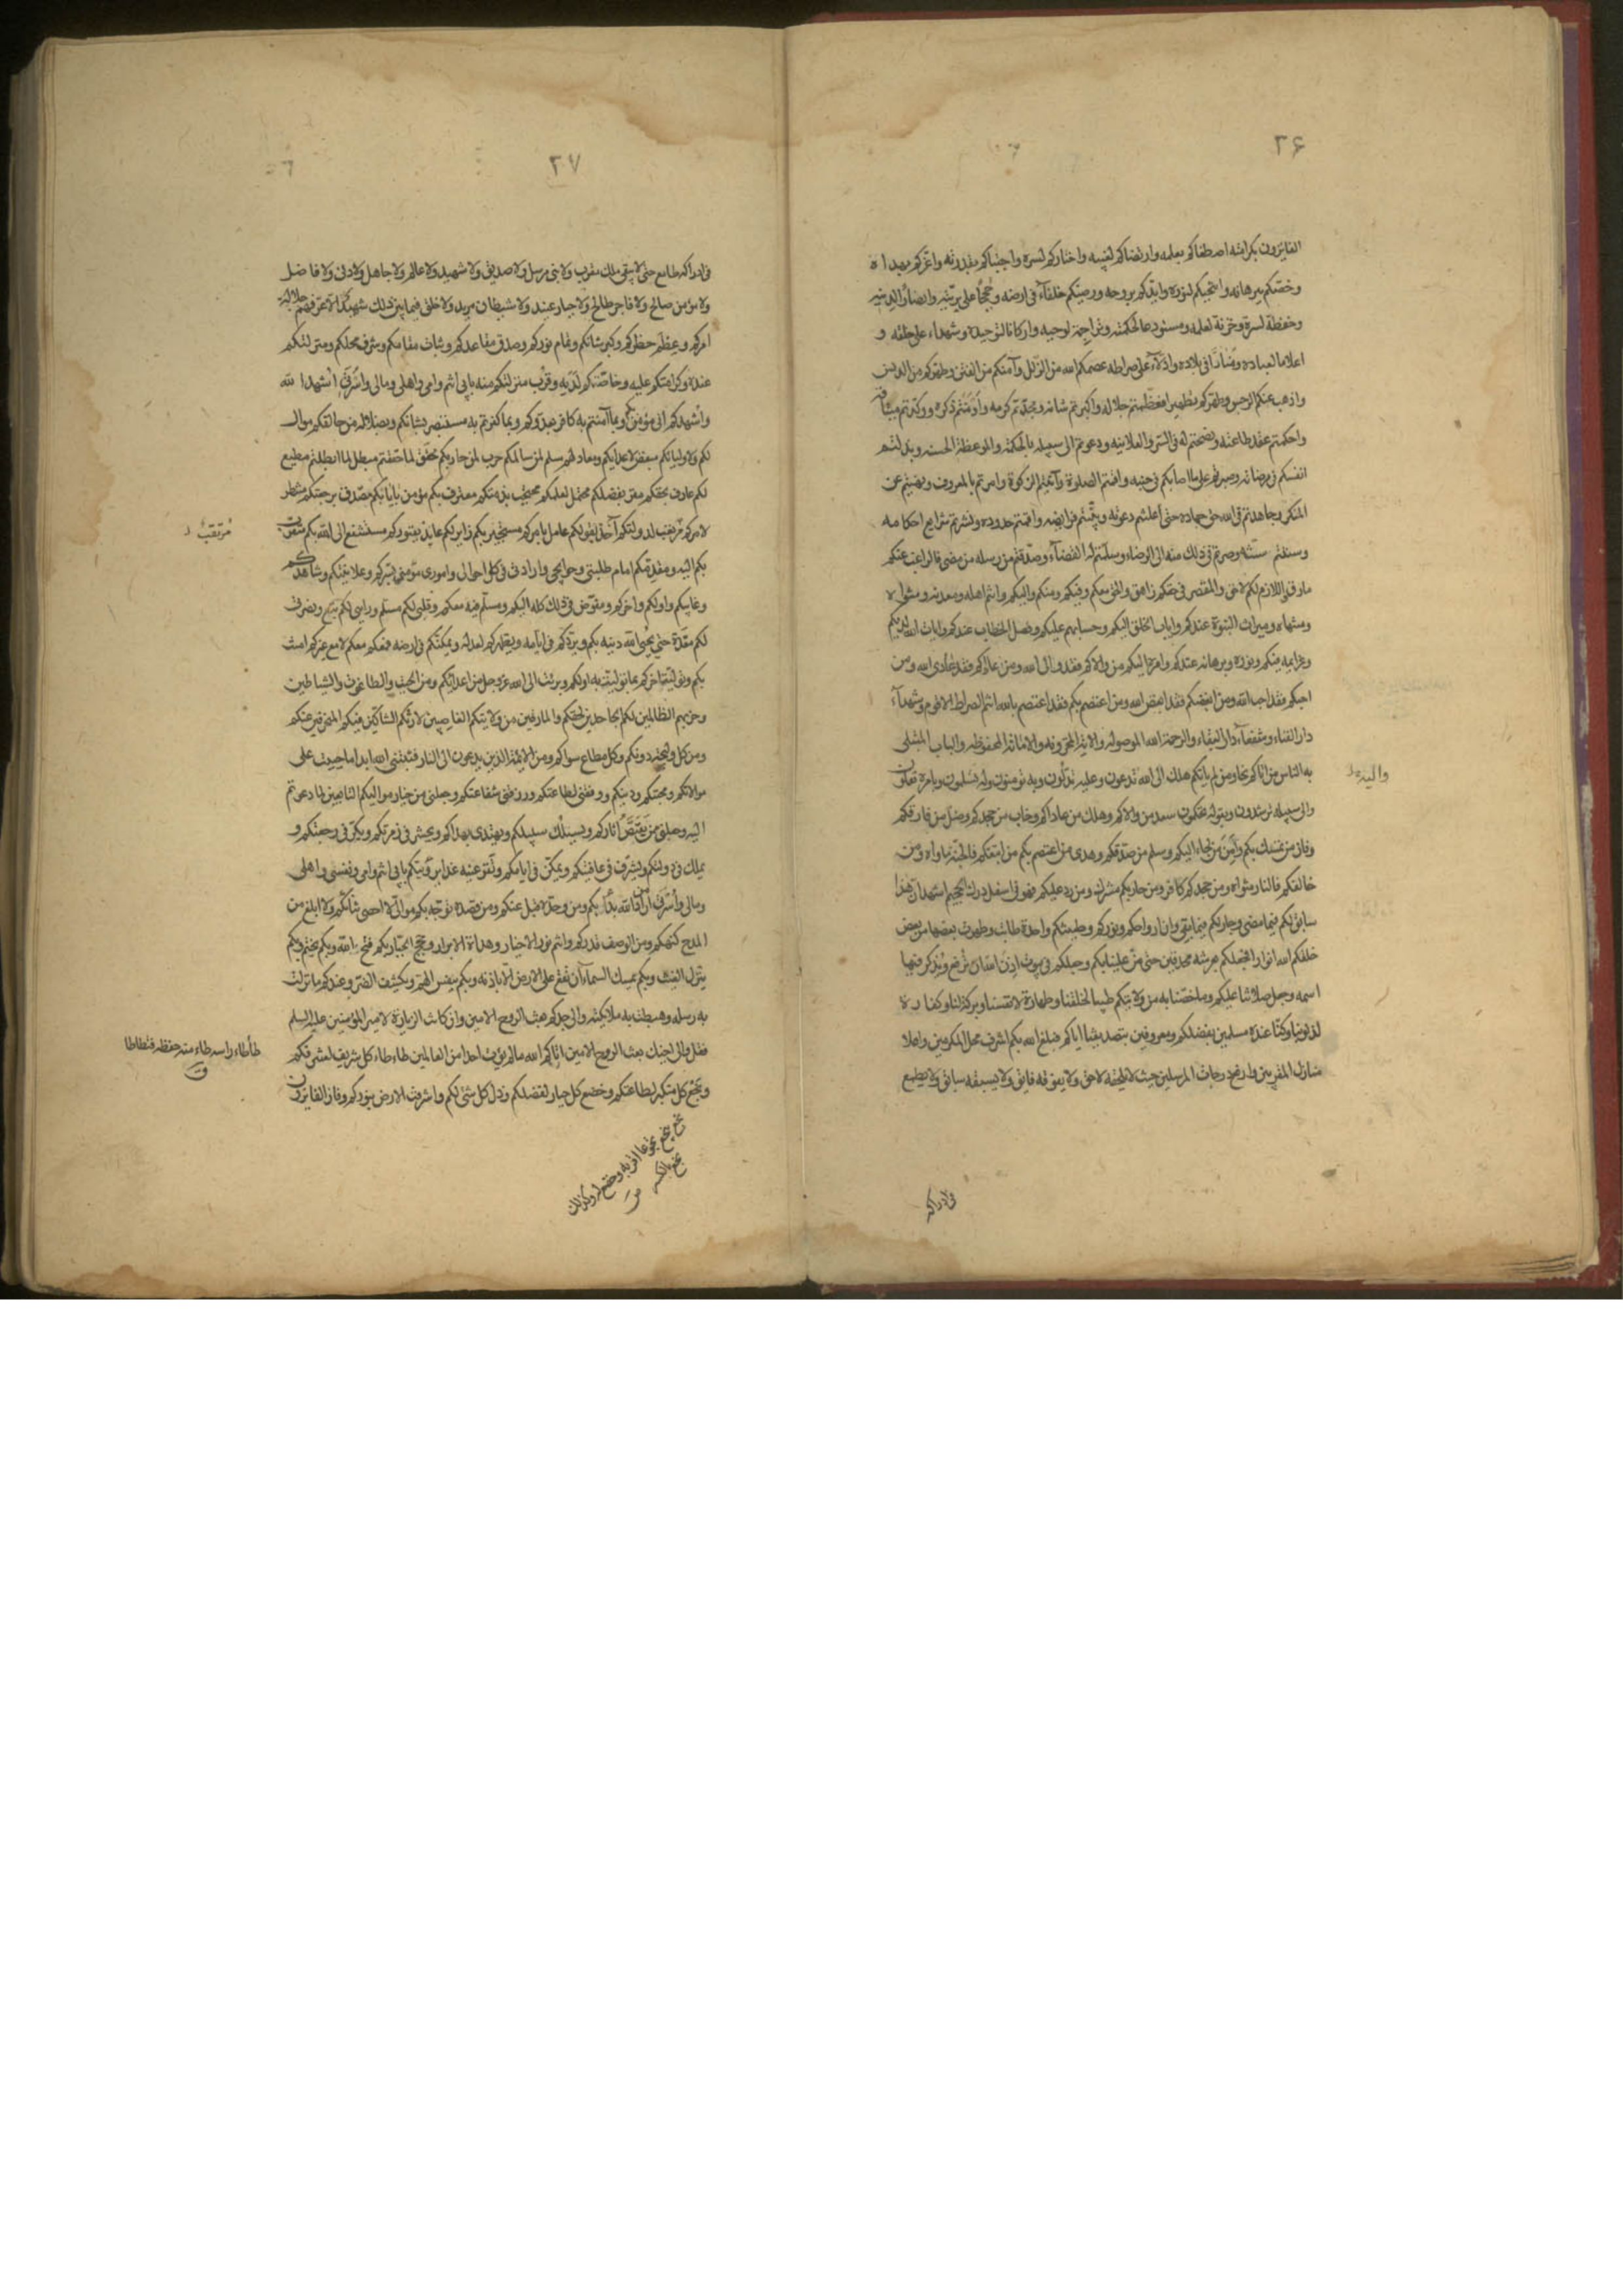 ٢۶
الفايزون بكرامته اصطفاكم بعلمه وارتضاكم لغيبه واختاركم لسره واجتباكم بقدرته واعزكم بهداه
وخصّكم ببرهانه وانتجبكم لنوره وايدكم بروحه ورضيكم خلفآء فى ارضه وحُججاً على بريّته وانصاراً لدينه
وحفظة لسره وخزنة لعلمه ومستودعا لحكمته وتراجمة لوحيه واركانا لتوحيده وشهداء على خلقه و
اعلاما لعباده ومناراً فى بلاده وادلاّء على صراطه عصمكم الله من الزلل وآمنكم من الفتن وطهركم من الدنس
واذهب عنكم الرجس وطهركم تطهيرا فعظّمتم جلاله واكبرتم شانه ومجدّتم كرمه وادمنتم ذكره ووكدتم ميثاقه
واحكمتم عقد طاعته ونصحتم له فى السّر والعلانيه ودعوتم الى سبيله بالحكمة والموعظة الحسنه وبذلتم
انفسكم فى مرضاته وصبرتم على ما اصابكم فى جنبه واقمتم الصلوة وآتيتم الزكوة وامرتم بالمعروف ونهيتم عن
المنكر وجاهدتم فى الله حق جهاده حتى اعلنتم دعوته وبيّنتم فرايضه واقمتم حدوده ونشرتم شرايع احكامه
وسننتم سنّته وصرتم فى ذلك منه الى الرضاء وسلّمتم له القضآء وصدّقتم من رسله من مضى فالراغب عنكم
مارق واللازم لكم لاحق والمقصر فى حقكم زاهق والحق معكم وفيكم ومنكم واليكم وانتم اهله ومعدنه ومثواه
ومنتهاه وميراث النبوة عندكم واياب الخلق اليكم وحسابهم عليكم وفصل الخطاب عندكم وايات الله لديكم
وعزايمه فيكم ونوره وبرهانه عندكم وامره اليكم من والاكم فقد والى الله ومن عاداكم فقد عادى الله ومن
احبكم فقد احب الله ومن ابغضكم فقد ابغض الله ومن اعتصم بكم فقد اعتصم بالله انتم الصراط الاقوم وشهدآء
دار الفناء وشفعآء دار البقاء والرحمة الله الموصوله والاية المخزونه والامانة المحفوظه والباب المبتلى
به الناس من اتاكم نجا ومن لم ياتكم هلك الى الله تدعون وعليه تدلّون وبه تومنون وله تسلمون وبامره تعملون
واليه د
والى سبيله ترشدون وبقوله تحكمون سعد من والاكم وهلك من عاداكم وخاب من جحدكم وضلّ من فارقكم
وفاز من تمسك بكم وأمِنَ من لجاء اليكم وسلم من صدّقكم وهدى من اعتصم بكم من اتبعكم فالجنة ماواه ومن
خالفكم فالنار مثواه ومن جحدكم كافر ومن حاربكم مشرك ومن رد عليكم فهو فى اسفل درك الجحيم اشهد ان هذا
سابق لكم فيما مضى وجار لكم فيما بقى وان ارواحكم ونوركم وطينتكم واحدة طابت وطهرت بعضها من بعض
خلقكم الله انوارا فجعلكم بعرشه محدقين حتى منّ علينا بكم وجعلكم فى بيوت اذن الله ان ترفع ويذكر فيها
اسمه وجعل صلاتنا عليكم وما خصّنا به من ولايتكم طيبا لخلقنا وطهارة لانفسنا وبركة لنا وكفارة
لذنوبنا وكنّا عنده مسلمين بفضلكم ومعروفين بتصديقنا اياكم فبلغ الله بكم اشرف محل المكرمين واعلا
منازل المقربين وارفع درجات المرسلين حيث لا يلحقه لاحق ولا يفوقه فايق ولا يسبقه سابق ولا يطمع
فى ادراكه
٢٧
فى ادراكه طامع حتى لا يبقى ملك مقرب ولا نبى مرسل ولا صديق ولا شهيد ولا عالم ولا جاهل ولا دنى ولا فاضل
ولا مؤمن صالح ولا فاجر طالح ولا جبار عنيد ولا شيطان مريد ولا خلق فيما بين ذلك شهيد الا عرّفهم جلالة
امركم وعِظَم خطركم وكبر شانكم وتمام نوركم وصدق مقاعدكم وثبات مقامكم وشرف محلكم ومنزلتكم
عنده وكرامتكم عليه وخاصّتكم لَدَيه وقُرب منزلتكم منه بابى انتم وامى واهلى ومالى واسرتى اُشهد الله
واُشهدكم انى مؤمن بكم وبما آمنتم به كافر بعدوّكم وبما كفرتم به مستبصر بشانكم وبضلالة من خالفكم موال
لكم ولاوليائكم مبغض لاعدايكم ومعاد لهم سلم لمن سالمكم حرب لمن حاربكم محقق لما حققتم مبطل لما ابطلتم مطيع
لكم عارف بحقكم مقر بفضلكم محتمل لعلمكم محتجب بذمتكم معترف بكم مؤمن بايابكم مصدق برجعتكم منتظر
لامركم مرتقب لدولتكم آخذ بقولكم عامل بامركم مستجير بكم زاير لكم عايذ بقبوركم مستشفع الى الله بكم متقرب
مُرتقبٌ د
بكم اليه ومقدمكم امام طلبتى وحوايجى وارادتى فى كل احوالى وامورى مؤمن بسركم وعلانيتكم وشاهدكم
وغايبكم واولكم واخركم ومفوّض فى ذلك كله اليكم ومسلّم فيه معكم وقلبى لكم مسلّم ورايى لكم تبع ونصرتى
لكم معّدة حتى يحيى الله دينه بكم ويردّكم فى ايامه ويظهركم لعدله ويمكنكم فى ارضه فمعكم معكم لا مع غيركم امنت
بكم وتوليت اخركم بما توليت به اولكم وبرئت الى الله عز وجل من اعدائكم ومن الجبت والطاغوت والشياطين
وحزبهم الظالمين لكم الجاحدين لحقكم والمارقين من ولايتكم الغاصبين لارثكم الشاكّين فيكم المنحرفين عنكم
ومن كل وليجة دونكم وكل مطاع سواكم ومن الائمة الذين يدعون الى النار فثبتنى الله ابدا ما حييت على
موالاتكم ومحبتكم ودينكم ووفقنى لطاعتكم ورزقنى شفاعتكم وجعلنى من خيار مواليكم التابعين لما دعوتم
اليه وجعلنى من يَقتَصُّ اثاركم ويسلك سبيلكم ويهتدى بهداكم ويحشر فى زمرتكم ويكرّ فى رجعتكم و
يملك فى دولتكم ويشرّف فى عافيتكم ويمكّن فى ايامكم وتقرّ عينه غدا برؤيتكم بابى انتم وامى ونفسى واهلى
ومالى واسرتى من اراد الله بدأ بكم ومن وحّده قبل عنكم ومن قصده توجّه بكم موالىّ لا احصى ثناءكم ولا ابلغ من
المدح كنهكم ومن الوصف قدركم وانتم نور الاخيار وهداة الابرار وحجج الجبّار بكم فتح الله وبكم يختم وبكم
ينزل الغيث وبكم يمسك السماء ان تقع على الارض الا باذنه وبكم ينفس الهمّ ويكشف الضرّ وعندكم ما نزلت
به رسله وهبطت به ملايكته والى جدكم بعث الروح الامين وان كانت الزيارة لامير المؤمنين عليه السلم
فقل والى اخيك بعث الروح الامين اتاكم الله ما لم يؤت احدا من العالمين طاءطاء كل شريف لشرفكم
طأطاء راسه طاء منه خفضه فتطاطا
ق
وبخع كل متكبر لطاعتكم وخضع كل جبار لفضلكم وذل كل شئ لكم واشرقت الارض بنوركم وفاز الفايزون